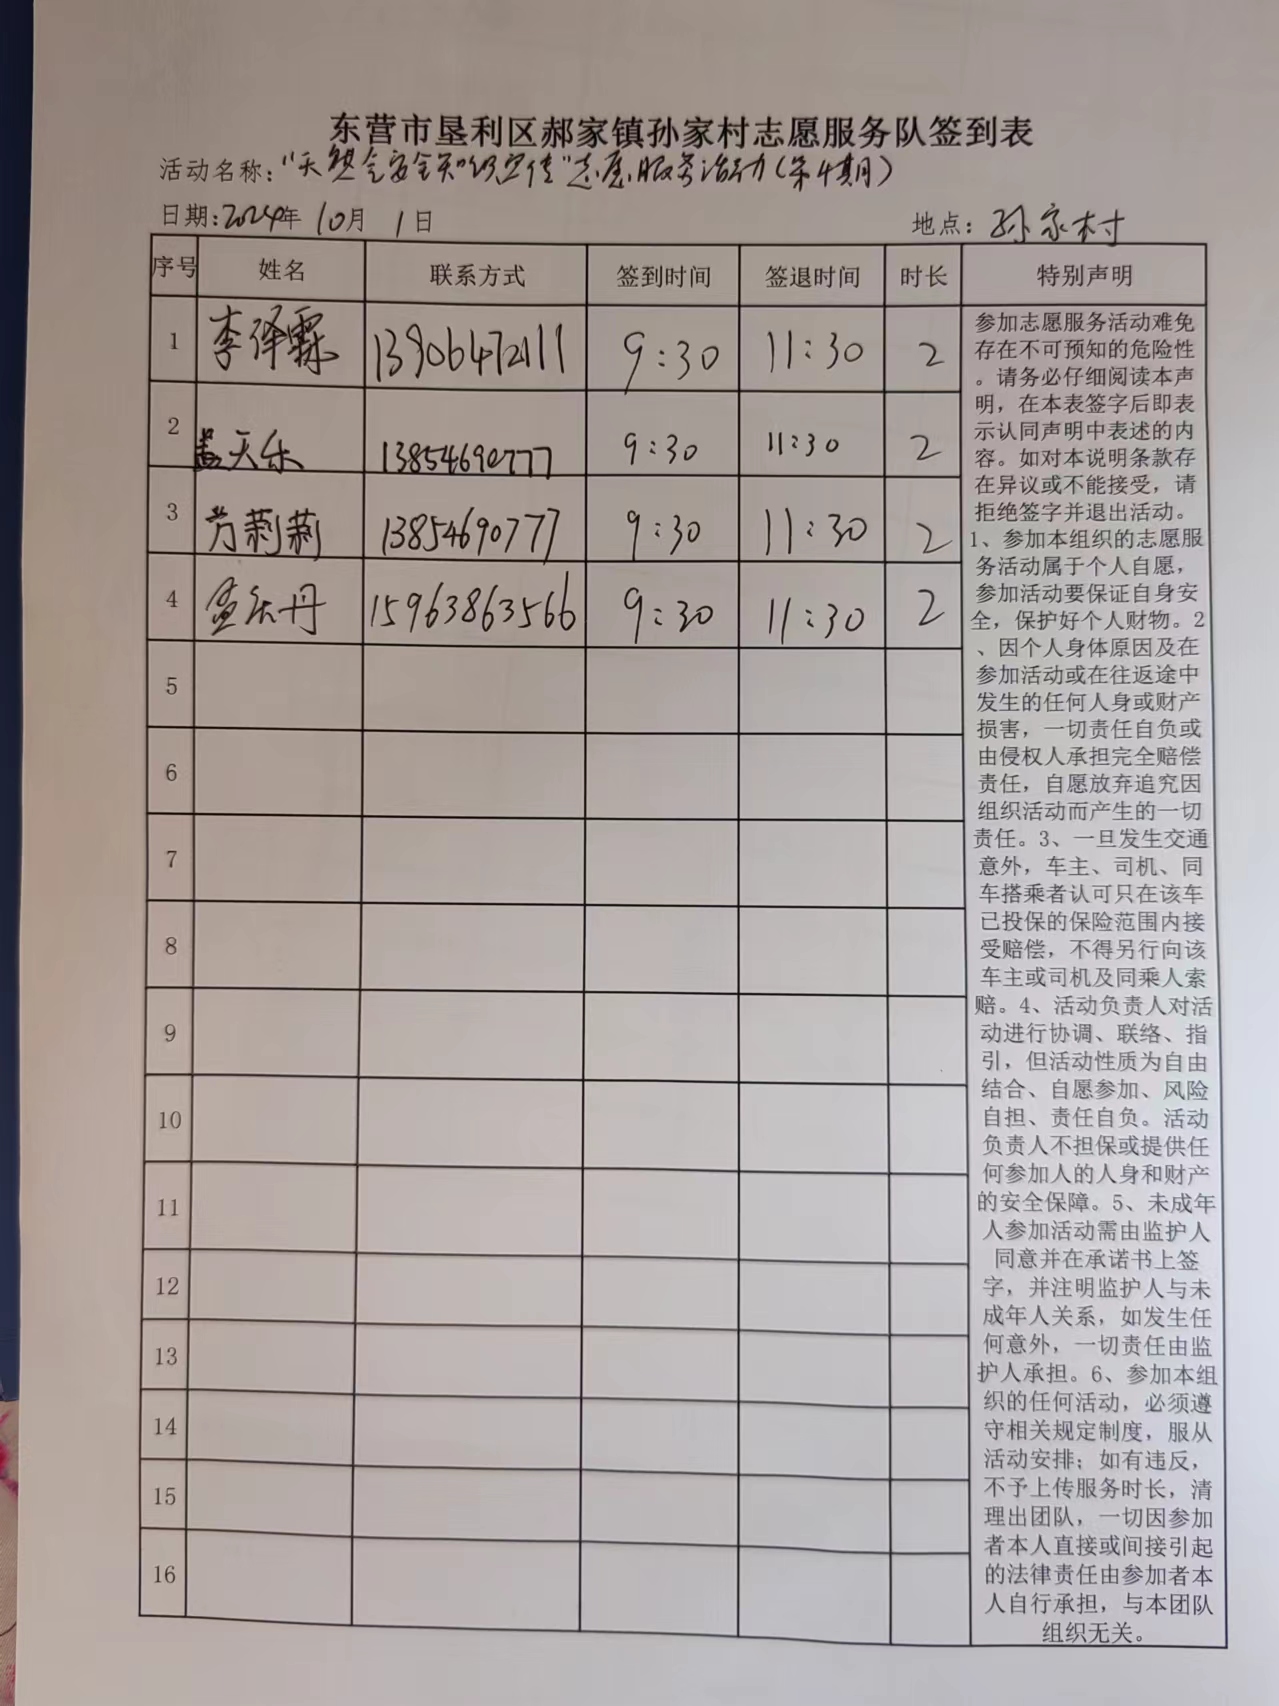 东营市垦利区郝家镇孙家村志愿服务队签到表
活动名称：“天然气安全知识宣传”志愿服务活动（第4期）
日期：2024年10月1日 地点：孙家村
序号 姓名 联系方式 签到时间 签退时间 时长 特别声明
1 李泽霖 13906472111 9:30 11:30 2
2 盖天乐 13854690777 9:30 11:30 2
3 莉莉 13854690777 9:30 11:30 2
4 丹 15963863566 9:30 11:30 2
5
6
7
8
9
10
11
12
13
14
15
16
参加志愿服务活动难免
存在不可预知的危险性
。请务必仔细阅读本声
明，在本表签字后即表
示认同声明中表述的内
容。如对本说明条款存
在异议或不能接受，请
拒绝签字并退出活动。
1、参加本组织的志愿服
务活动属于个人自愿，
参加活动要保证自身安
全，保护好个人财物。2
、因个人身体原因及在
参加活动或在往返途中
发生的任何人身或财产
损害，一切责任自负或
由侵权人承担完全赔偿
责任，自愿放弃追究因
组织活动而产生的一切
责任。3、一旦发生交通
意外，车主、司机、同
车搭乘者认可只在该车
已投保的保险范围内接
受赔偿，不得另行向该
车主或司机及同乘人索
赔。4、活动负责人对活
动进行协调、联络、指
引，但活动性质为自由
结合、自愿参加、风险
自担、责任自负。活动
负责人不担保或提供任
何参加人的人身和财产
的安全保障。5、未成年
人参加活动需由监护人
同意并在承诺书上签
字，并注明监护人与未
成年人关系，如发生任
何意外，一切责任由监
护人承担。6、参加本组
织的任何活动，必须遵
守相关规定制度，服从
活动安排；如有违反，
不予上传服务时长，清
理出团队，一切因参加
者本人直接或间接引起
的法律责任由参加者本
人自行承担，与本团队
组织无关。